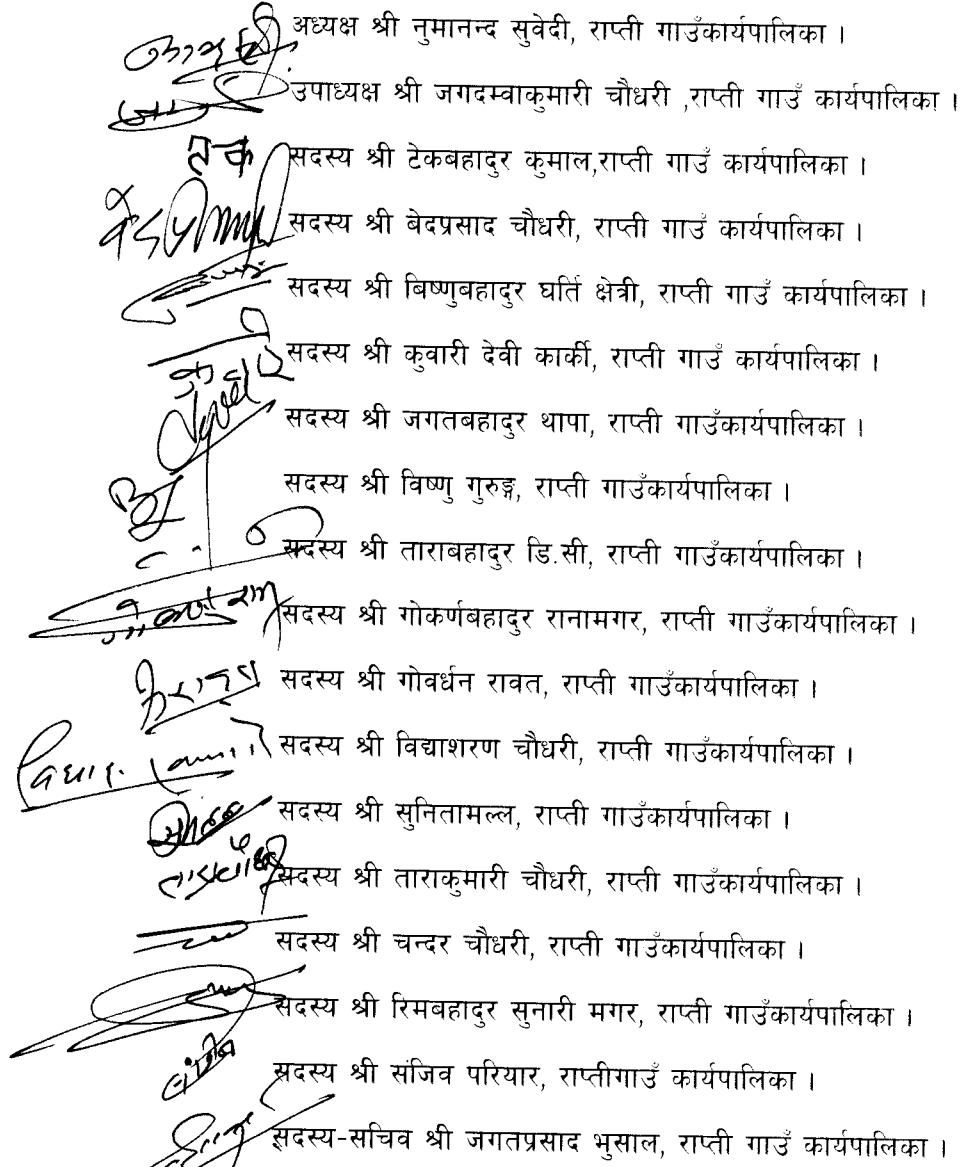 अध्यक्ष श्री नुमानन्द सुवेदी, राप्ती गाउँकार्यपालिका ।
उपाध्यक्ष श्री जगदम्वाकुमारी चौधरी ,राप्ती गाउँ कार्यपालिका ।
सदस्य श्री टेकबहादुर कुमाल,राप्ती गाउँ कार्यपालिका ।
सदस्य श्री बेदप्रसाद चौधरी, राप्ती गाउँ कार्यपालिका ।
सदस्य श्री बिष्णुबहादुर घर्ति क्षेत्री, राप्ती गाउँ कार्यपालिका ।
सदस्य श्री कुवारी देवी कार्की, राप्ती गाउँ कार्यपालिका ।
सदस्य श्री जगतबहादुर थापा, राप्ती गाउँकार्यपालिका ।
सदस्य श्री विष्णु गुरुङ्ग, राप्ती गाउँकार्यपालिका ।
सदस्य श्री ताराबहादुर डि.सी, राप्ती गाउँकार्यपालिका ।
सदस्य श्री गोकर्णबहादुर रानामगर, राप्ती गाउँकार्यपालिका ।
सदस्य श्री गोवर्धन रावत, राप्ती गाउँकार्यपालिका ।
सदस्य श्री विद्याशरण चौधरी, राप्ती गाउँकार्यपालिका ।
सदस्य श्री सुनितामल्ल, राप्ती गाउँकार्यपालिका ।
सदस्य श्री ताराकुमारी चौधरी, राप्ती गाउँकार्यपालिका ।
सदस्य श्री चन्दर चौधरी, राप्ती गाउँकार्यपालिका ।
सदस्य श्री रिमबहादुर सुनारी मगर, राप्ती गाउँकार्यपालिका ।
सदस्य श्री संजिव परियार, राप्तीगाउँ कार्यपालिका ।
सदस्य-सचिव श्री जगतप्रसाद भुसाल, राप्ती गाउँ कार्यपालिका ।